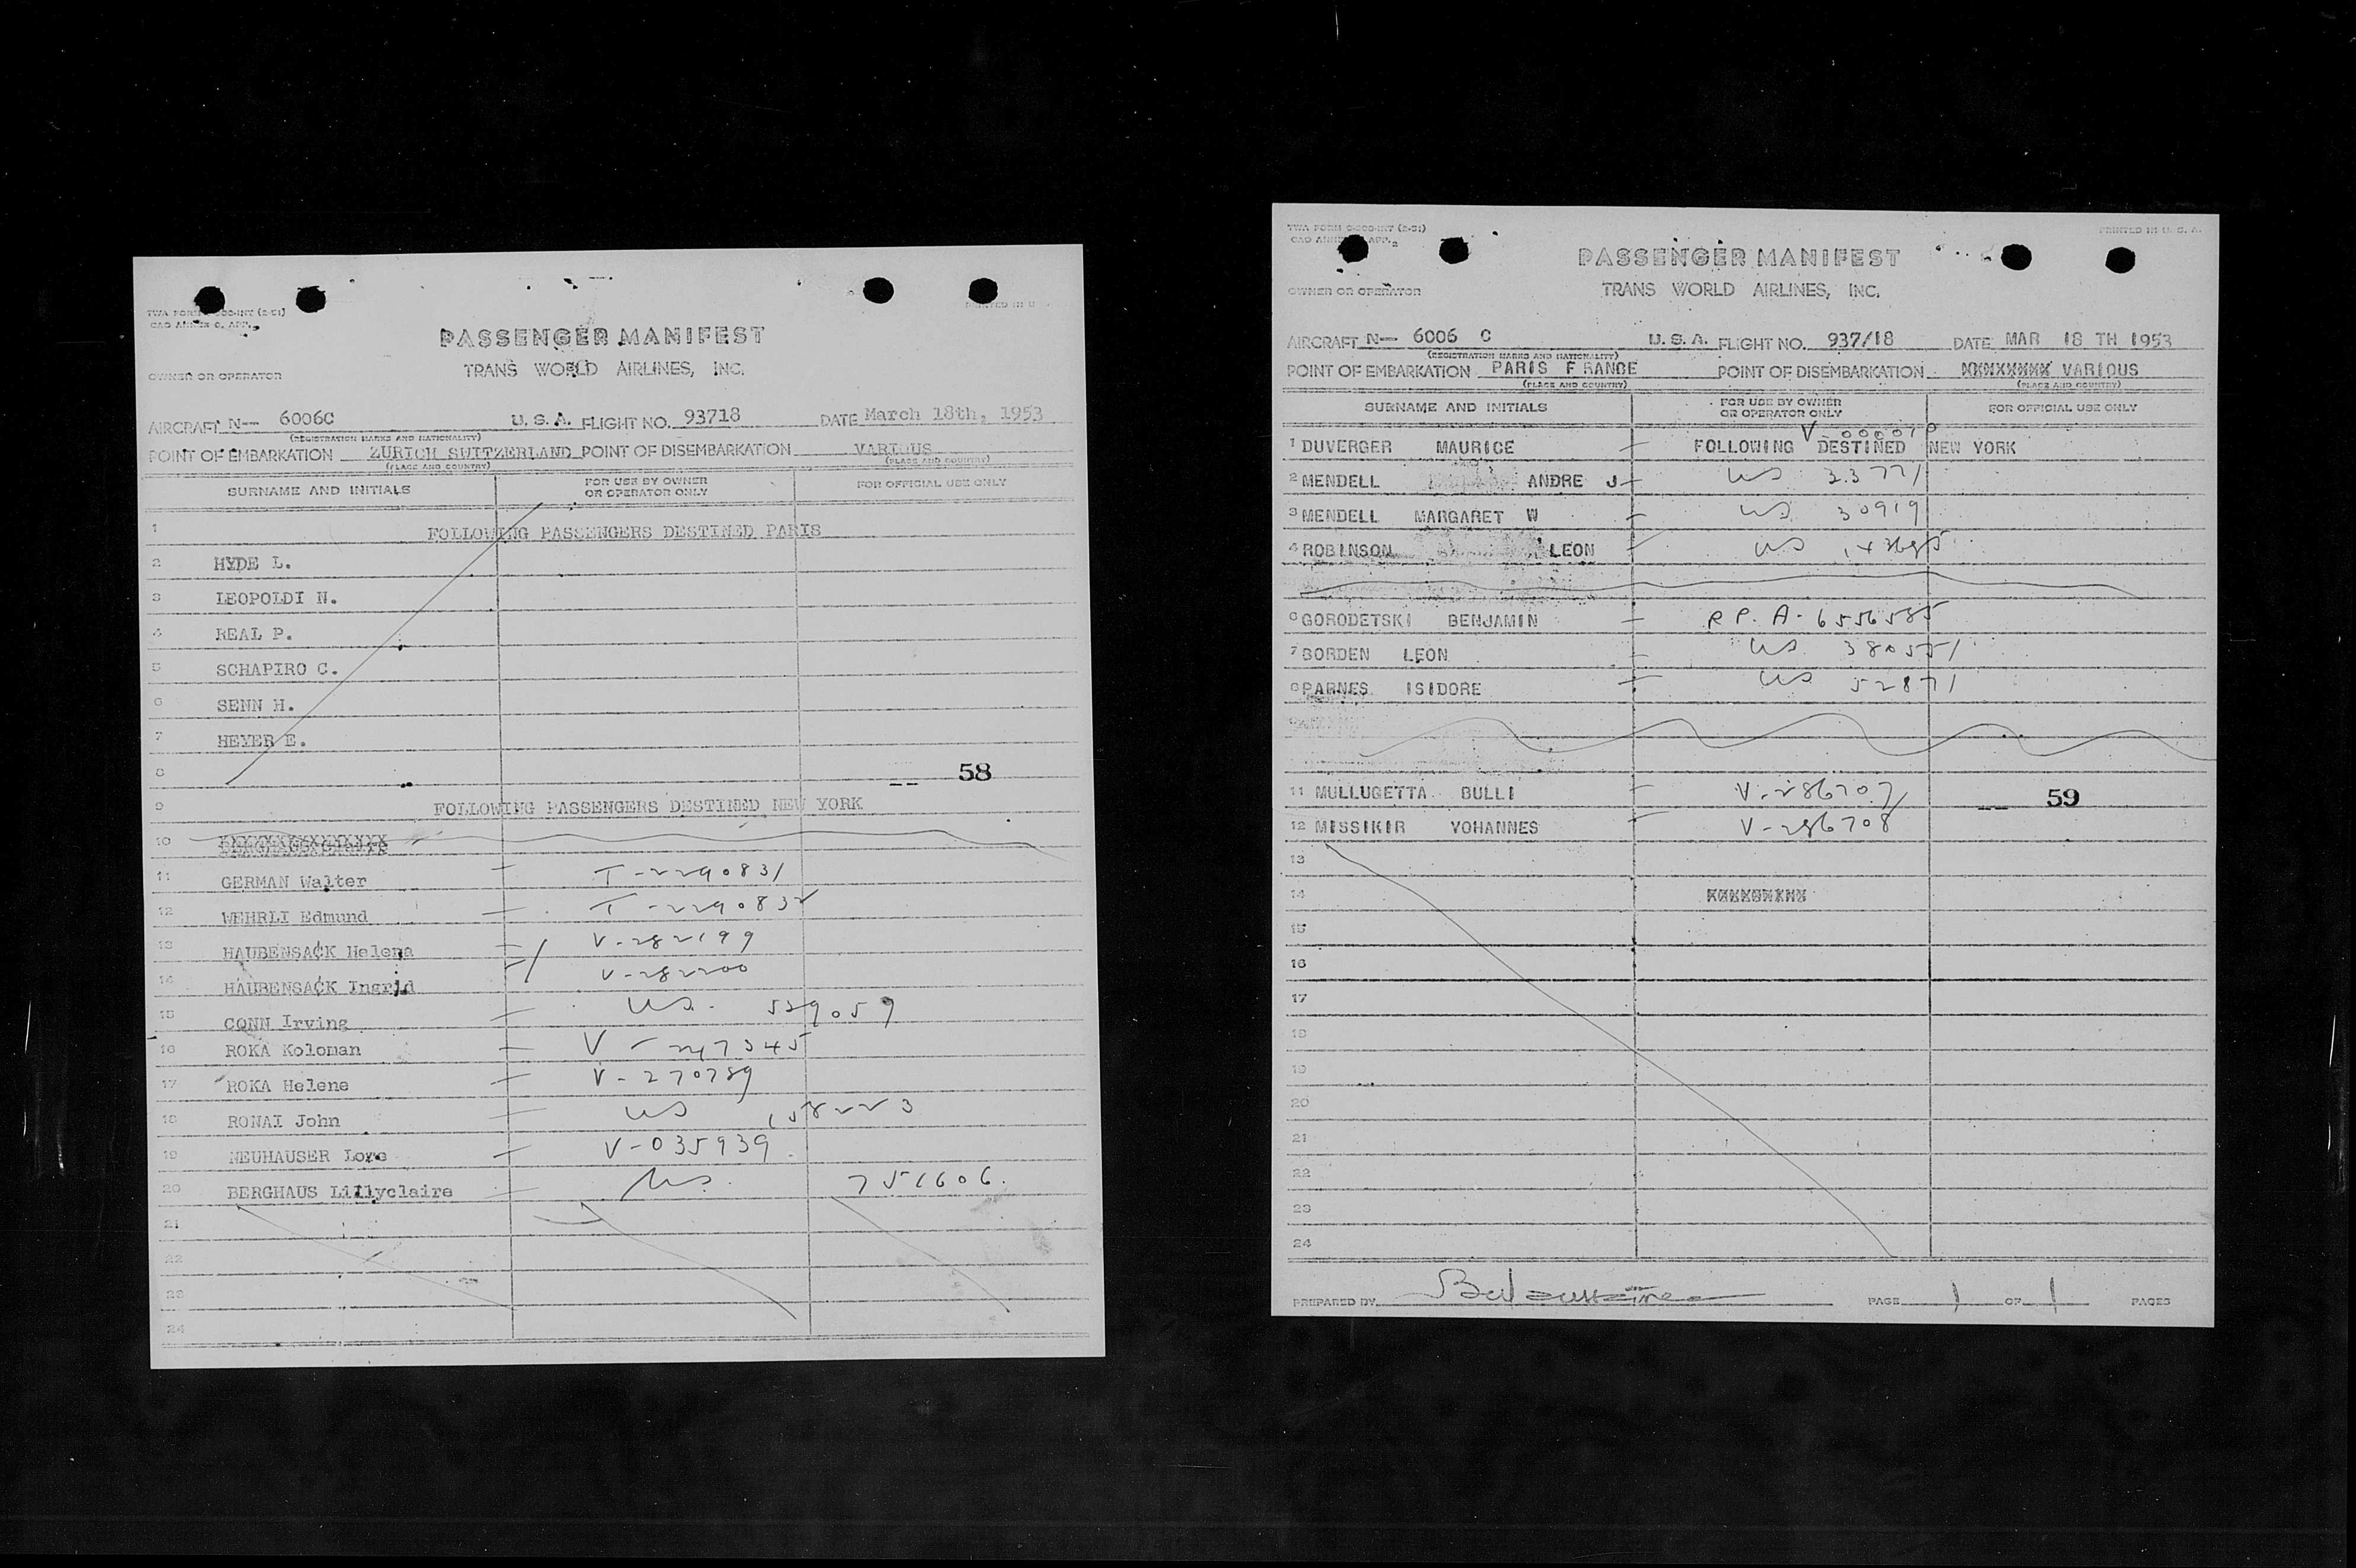 TWA FORM
PRINTED IN U
CAO ANNEX 9, APP.
PASSENGER MANIFEST
OWNER OR OPERATOR
TRANS WORLD AIRLINES, INC.
AIRCRAFT N— 6006C U. S. A. FLIGHT NO. 93718 DATE March 18th, 1953
(REGISTRATION MARKS AND NATIONALITY)
POINT OF EMBARKATION ZURICH SWITZERLAND POINT OF DISEMBARKATION VARIOUS
(PLACE AND COUNTRY) (PLACE AND COUNTRY)
SURNAME AND INITIALS FOR USE BY OWNER OR OPERATOR ONLY FOR OFFICIAL USE ONLY
1 FOLLOWING PASSENGERS DESTINED PARIS
2 HYDE L.
3 LEOPOLDI N.
4 REAL P.
5 SCHAPIRO C.
6 SENN H.
7 HEYER E.
8 58
9 FOLLOWING PASSENGERS DESTINED NEW YORK
10
11 GERMAN Walter T-2290831
12 WEHRLI Edmund T-2290832
13 HAUBENSACK Helena V-282199
14 HAUBENSACK Ingrid V-282200
15 CONN Irving US. 529059
16 ROKA Koloman V-247345
17 ROKA Helene V-270789
18 RONAI John US 158223
19 NEUHAUSER Lore V-035939
20 BERGHAUS Lillyclaire US. 751606.
21
22
23
24
TWA FORM
PRINTED IN U. S. A.
CAO ANNEX APP.
PASSENGER MANIFEST
OWNER OR OPERATOR
TRANS WORLD AIRLINES, INC.
AIRCRAFT N— 6006 C U. S. A. FLIGHT NO. 937/18 DATE MAR 18 TH 1953
(REGISTRATION MARKS AND NATIONALITY)
POINT OF EMBARKATION PARIS FRANCE POINT OF DISEMBARKATION XXXXXXXX VARIOUS
(PLACE AND COUNTRY) (PLACE AND COUNTRY)
SURNAME AND INITIALS FOR USE BY OWNER OR OPERATOR ONLY FOR OFFICIAL USE ONLY
1 DUVERGER MAURICE FOLLOWING DESTINED NEW YORK
2 MENDELL ANDRE J US 33771
3 MENDELL MARGARET W US 30919
4 ROBINSON LEON US
6 GORODETSKI BENJAMIN R.P. A-6556585
7 BORDEN LEON US 380551
8 PARNES ISIDORE US 52871
11 MULLUGETTA BULLI V-286707 59
12 MISSIKIR YOHANNES V-286708
13
14
15
16
17
18
19
20
21
22
23
24
PREPARED BY PAGE 1 OF 1 PAGES